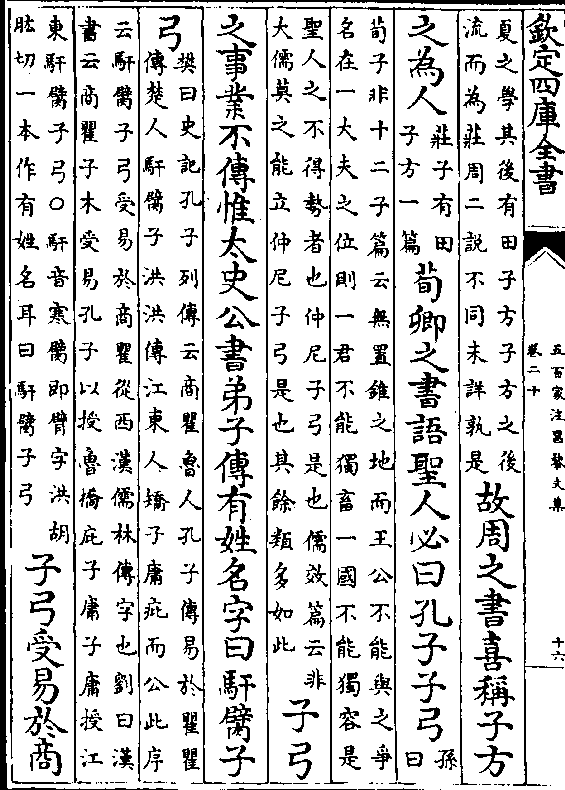 欽定四庫全書
五百家注昌黎文集
卷二十
十六
夏之學其後有田子方子方之後
流而為莊周二説不同未詳孰是
故周之書喜稱子方
之為人
莊子有田
子方一篇
荀卿之書語聖人必曰孔子子弓
孫
曰
荀子非十二子篇云無置錐之地而王公不能與之爭
名在一大夫之位則一君不能獨畜一國不能獨容是
聖人之不得勢者也仲尼子弓是也儒效篇云非
大儒莫之能立仲尼子弓是也其餘類多如此
子弓
之事業不傳惟太史公書弟子傳有姓名字曰馯臂子
弓
樊曰史記孔子列傳云商瞿魯人孔子傳易於瞿瞿
傳楚人馯臂子洪洪傳江東人矯子庸疵而公此序
云馯臂子弓受易於商瞿從西漢儒林傳字也劉曰漢
書云商瞿子木受易孔子以授魯橋庇子庸子庸授江
東馯臂子弓○馯音寒臂即臂字洪胡
肱切一本作有姓名耳曰馯臂子弓
子弓受易於商